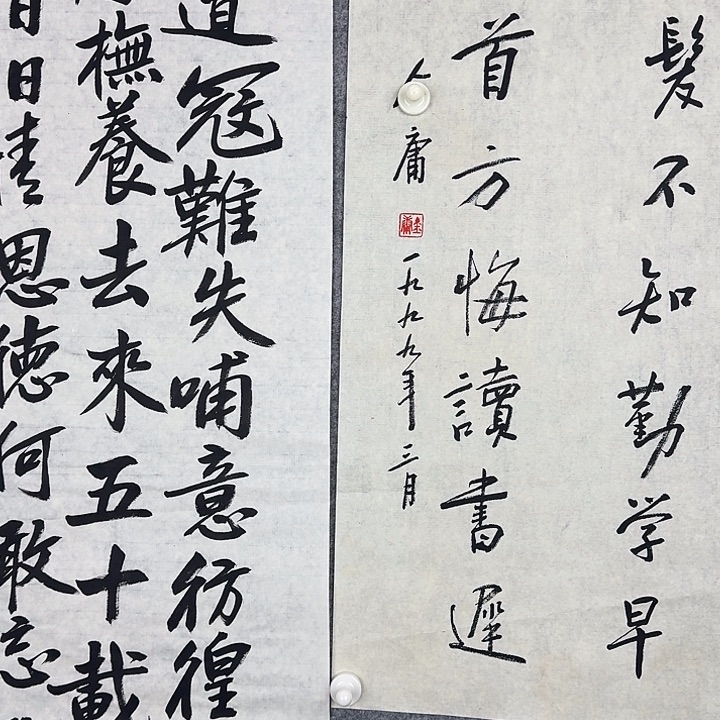 髮不知勤学早
首方悔讀書遲
金庸
金庸
一九九九年三月
寇難失哺意彷徨
撫養去來五十載
日情恩德何敢忘